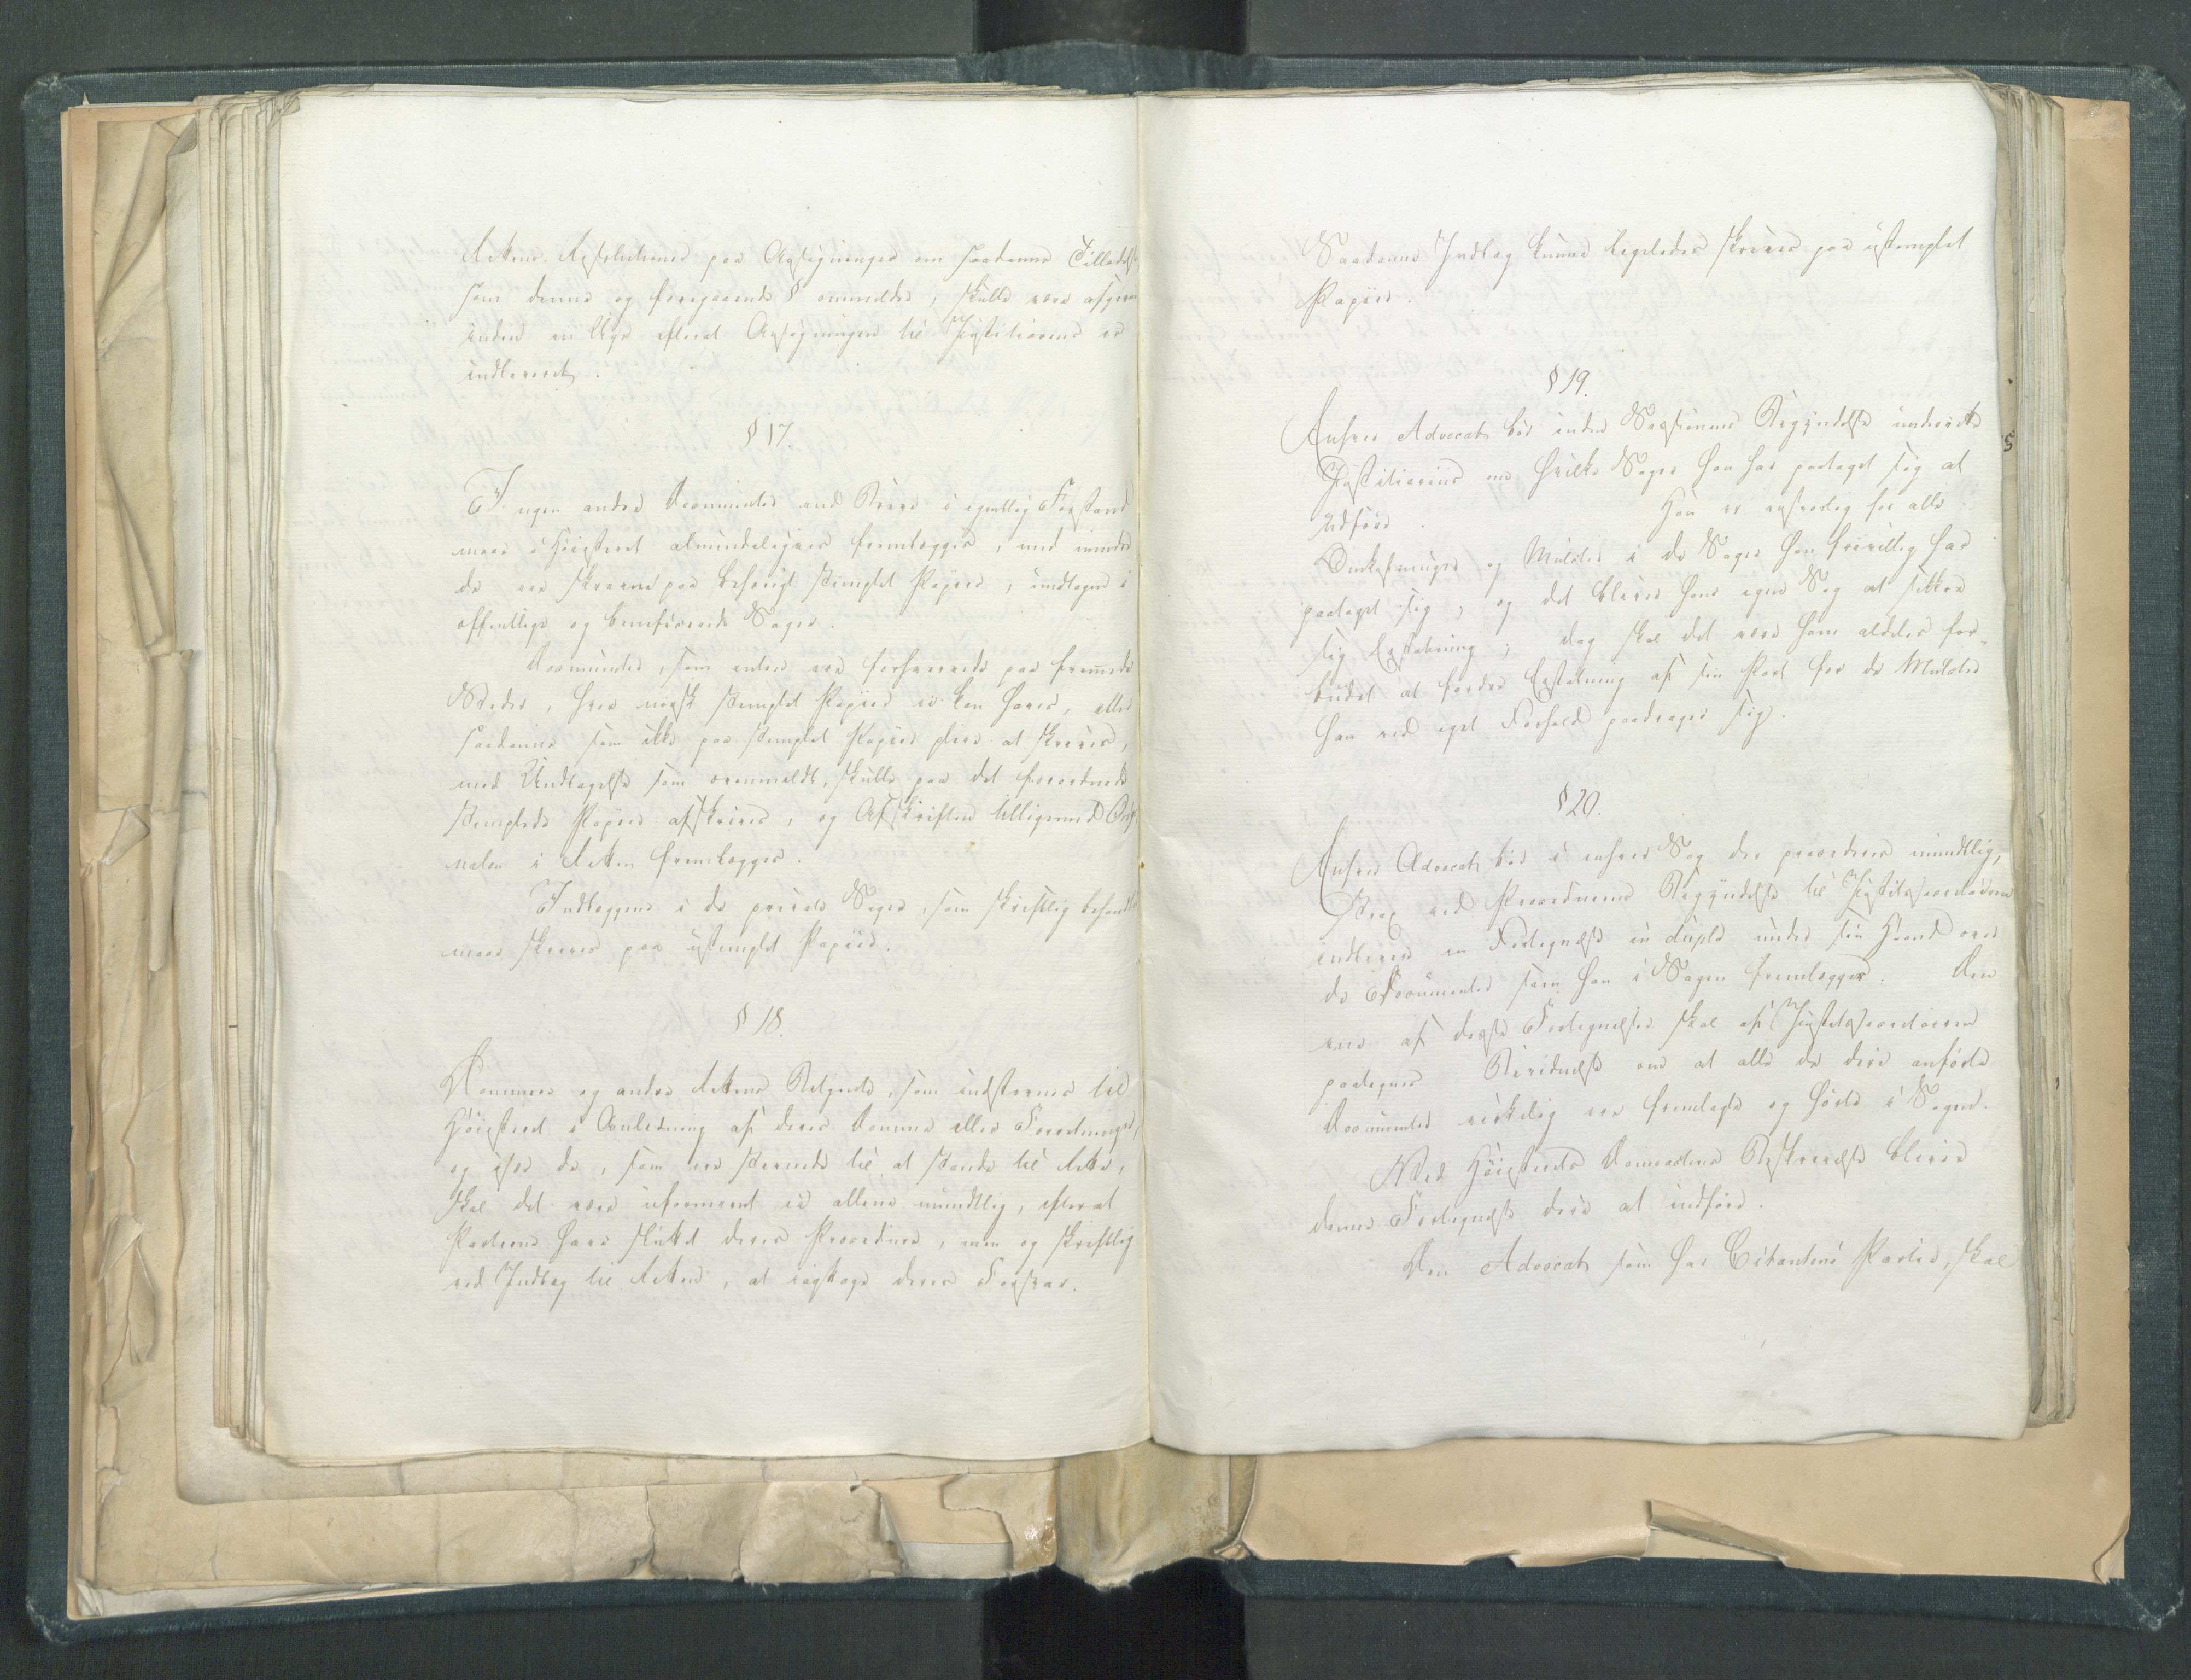 Rettens Resolutioner paa Ansøgninger om saadanne Tilladelser
som denne og foregaaende § ommelder, skulle være afgivne
inden en Uge efterat Ansøgningen til Justitiarius er
indleveret.
§ 17.
Ingen andre Documenter end Breve i egentlig Forstand
maae i Høiesteret almindeligviis fremlægges, med mindre
de ere skrevne paa behørigt stemplet Papiir, undtagen i
offentlige og beneficerede Sager.
Documenter, som enten ere forfærdede paa fremmede
Steder, hvor norsk stemplet Papiir ei kan haves, eller
saadanne som ikke paa stemplet Papiir pleie at skrives,
med Undtagelse som ovenmeldt, skulle paa det forordnede
stemplede Papiir afskrives, og Afskriften tilligemed Origi
nalen i Retten fremlægges.
Indlæggene i de private Sager, som skriftlig behandles
maae skrives paa ustemplet Papiir.
§ 18.
Dommere og andre Rettens Betjente, som indstævnes til
Høiesteret i Anledning af deres Domme eller Forretninger,
og især de, som ere stævnede til at stande til Rette,
skal det være uformeent ei allene mundtlig, efterat
Parterne have sluttet deres Procedure, men og skriftlig
ved Indlæg til Retten, at iagttage deres Forsvar.
Saadanne Indlæg kunne ligeledes skrives paa ustemplet
Papiir.
§ 19.
Enhver Advocat bør inden Sessionens Begyndelse underrette
Justitiarius om hvilke Sager han har paataget sig at
udføre. Han er ansvarlig for alle
Omkostninger og Mulcter i de Sager han frivillig har
paataget sig, og det bliver hans egen Sag at sikkre
sig Erstatning; dog skal det være ham aldeles for-
budet at fordre Erstatning af sin Part for de Mulcter
han ved eget Forhold paadrager sig.
§ 20.
Enhver Advocat bør i enhver Sag der procederes mundtlig,
strax ved Procedurens Begyndelse til Justitssecretairen
indlevere en Fortegnelse in duplo under sin Haand over
de Documenter som han i Sagen fremlægger. Den
ene af disse Fortegnelser skal af Justitssecretairen
paategnes Bevidnelse om at alle de deri anførte
Documenter virkelig ere fremlagte og hørte i Sagen.
Ved Høiesterets Domsactens Beskrivelse bliver
denne Fortegnelse deri at indføre.
Den Advocat som har Citantens Partes, skal